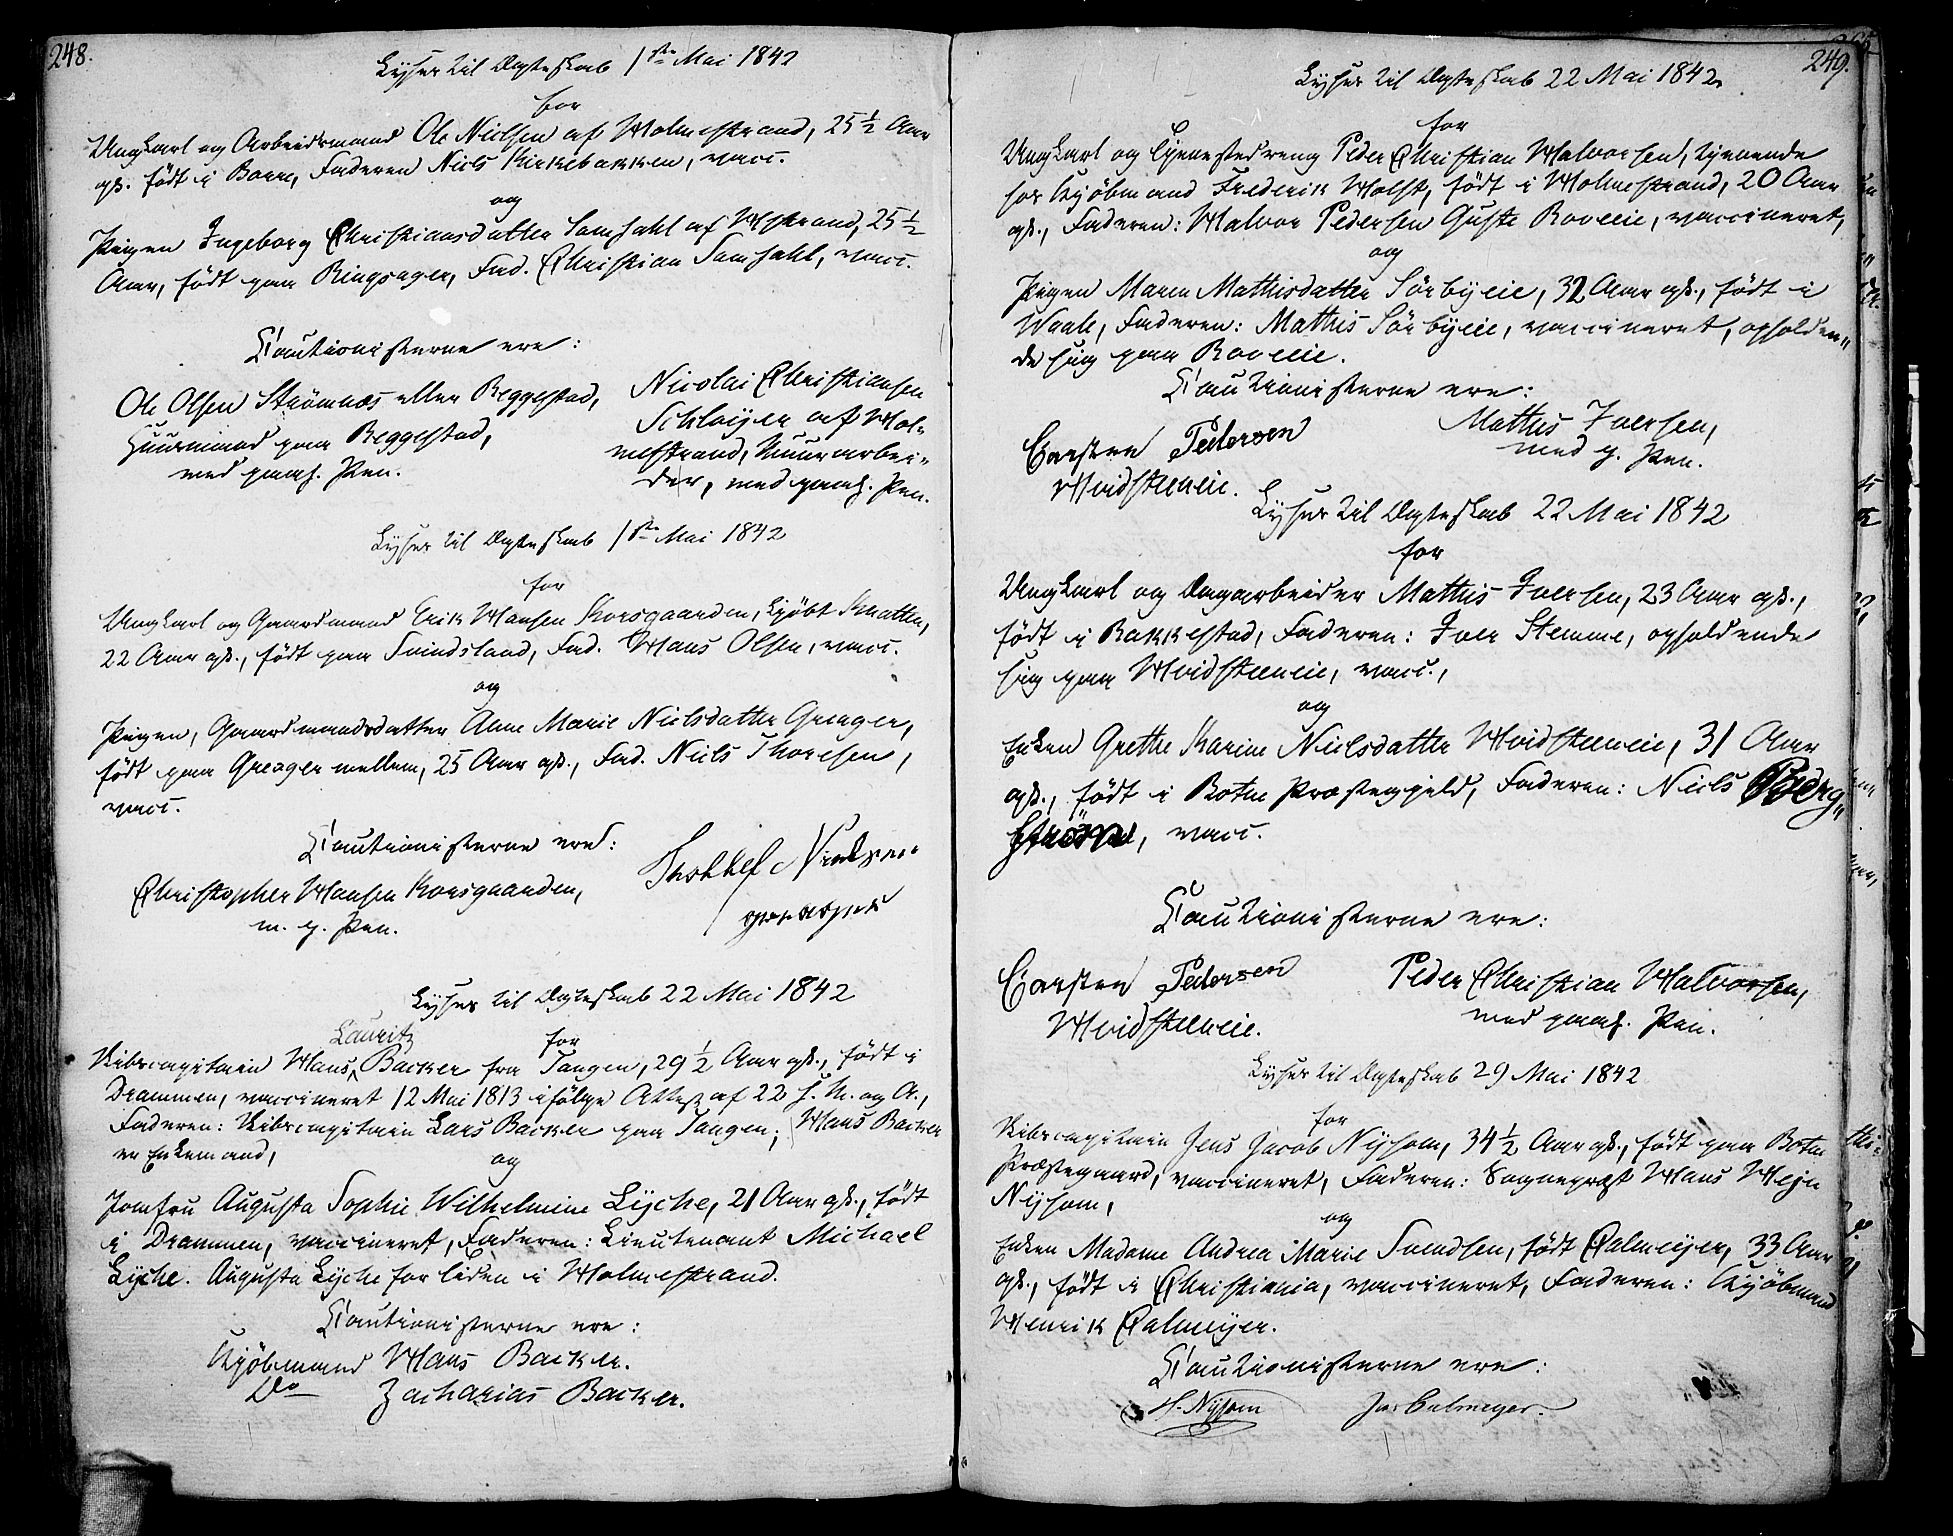 248.
Lyses til Ægteskab 1ste Mai 1842
for
Ungkarl og Arbeidsmand Ole Nielsen af Holmestrand, 25 1/2 Aar
gl. født i Borre, Faderen Niels Kirkebakken, vacc.
og
Pigen Ingeborg Christiansdatter Samsahl af Hstrand, 25 1/2
Aar, født paa Ringsager, Fad. Christian Samsahl, vacc.
Cautionisterne ere:
Ole Olsen Strömnæs eller Beggestad,
Huusmand paa Beggestad,
med paah. Pen.
Nicolai Christiansen
Schlöijer af Hol-
mestrand, Muurarbei-
der, med paah. Pen.
Lyses til Ægteskab 1ste Mai 1842
for
Ungkarl og Gaardmand Erik Hansen Korsgaarden, kjøbt Knatten,
22 Aar gl., født paa Svindsland, Fad. Hans Olsen, vacc.
og
Pigen, Gaardmandsdatter Anne Marie Nielsdatter Greager,
født paa Greager mellem, 25 Aar gl., Fad. Niels Thoresen,
vacc.
Cautionisterne ere:
Christopher Hansen Korsgaarden,
m. p. Pen.
Nielsen
Lyses til Ægteskab 22 Mai 1842
for
Skibscapitain Hans Lauritz Backer fra Tangen, 29 1/2 Aar gl., født i
Drammen, vaccineret 12 Mai 1813 ifölge Attest af 22 s. M. og A.,
Faderen: Skibscapitain Lars Backer paa Tangen; Hans Backer
er Enkemand,
og
Jomfru Augusta Sophie Wilhelmine Lyche, 21 Aar gl., født
i Drammen, vaccineret, Faderen: Lieutenant Michael
Lyche. Augusta Lyche for tiden i Holmestrand.
Cautionisterne ere:
Kjöbmand Hans Backer.
Do Zacharias Backer.
249.
Lyses til Ægteskab 22 Mai 1842
for
Ungkarl og Tjenestedreng Peder Christian Halvorsen, tjenende
hos Kjöbmand Frederik Holst, født i Holmestrand, 20 Aar
gl., Faderen: Halvor Pedersen Roveeie, vaccineret,
og
Pigen Maren Mathisdatter Sörbyeie, 32 Aar gl., født i
Waale, Faderen: Mathis Sörbyeie, vaccineret, opholden-
de sig paa Roveeie.
Cautionisterne ere:
Carsten Pedersen
Hvidsteneie.
Mathis Iversen,
med p. Pen.
Lyses til Ægteskab 22 Mai 1842
for
Ungkarl og Dagarbeider Mathis Iversen, 23 Aar gl.,
født i Bakkestad, Faderen: Iver Stemme, opholdende
sig paa Hvidsteneie, vacc.,
og
Enken Grethe Karine Nielsdatter Hvidsteneie, 31 Aar
gl., født i Botne Præstegjeld, Faderen: Niels Bjerg-
ström, vacc.
Cautionisterne ere:
Carsten Pedersen
Hvidsteneie.
Peder Christian Halvorsen,
med paah. Pen.
Lyses til Ægteskab 29 Mai 1842
for
Skibscapitain Jens Jacob Nysom, 34 1/2 Aar gl., født paa Botne
Præstegaard, vaccineret, Faderen: Sognepræst Hans Hejn
Nysom,
og
Enken Madame Andrea Marie Svendsen, født Calmeijer, 33 Aar
gl., født i Christiania, vaccineret, Faderen: Kjöbmand
Henrik Calmeijer.
Cautionisterne ere:
H. Nysom
Calmeyer.